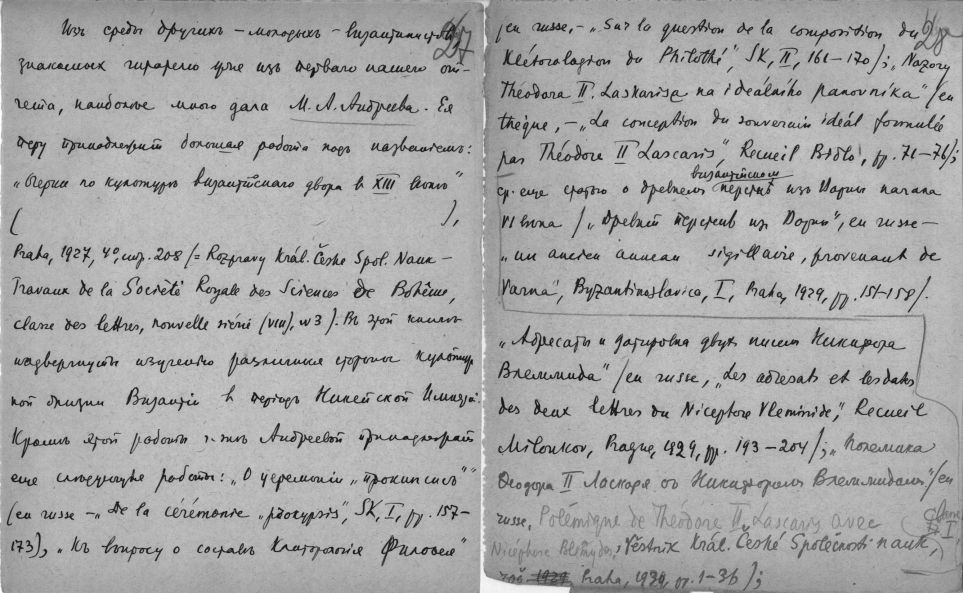 27
Изъ среды другихъ – молодыхъ – византинистовъ,
знакомыхъ читателю уже изъ перваго нашего от-
чета, наиболѣе много дала М. А. Андреева. Ея
перу принадлежитъ большая работа подъ названіемъ:
„Очерки по культурѣ византійскаго двора в XIII вѣкѣ"
( ),
Praha, 1927, 4º, стр. 208 /= Rozpravy Král. České Spol. Nauk –
Travaux de la Société Royale des Sciences de Bohême,
classe des lettres, nouvelle série (VIII), № 3). Въ этой книгѣ
подвергнуты изученію различныя стороны культур-
ной жизни Византіи в періодъ Никейской Имперіи.
Кромѣ этой работы г-жѣ Андреевой принадлежатъ
еще слѣдующія работы: „О церемоніи „прокипсисъ""
(en russe – „De la cérémonie „prokypsis", SK, I, pp. 157–
173), „Къ вопросу о составѣ Клиторологія Филоѳея"
28
/en russe, – „Sur la question de la composition du
Klétorologion du Philothé", SK, II, 161–170/; „Názory
Theodora II. Laskarisa na ideálního panovníka" /en
tchèque, – „La conception du souverain idéal formulée
par Théodore II Lascaris", Recueil Bidlo, pp. 71–76/;
византійском
ср. еще статью о древнемъ перстнѣ изъ Варны начала
VI вѣка / „Древній перстень из Варны", en russe –
„un ancien anneau sigillaire, provenant de
Varna", Byzantinoslavica, I, Praha, 1929, pp. 151–158/.
„Адресаты и датировка двухъ писемъ Никифора
Влеммида" /en russe, „Les adresats et les dates
des deux lettres du Nicephore Vlemmide", Recueil
Miloukov, Prague, 1929, pp. 193–204/; „Полемика
Ѳеодора II Ласкаря съ Никифоромъ Влеммидомъ" /en
russe, Polémique de Théodore II Lascaris avec
Nicéphore Blémydes, Věstník Král. České Společnosti nauk,
třída I,
roč. 1929, Praha, 1929, pp. 1–36/;